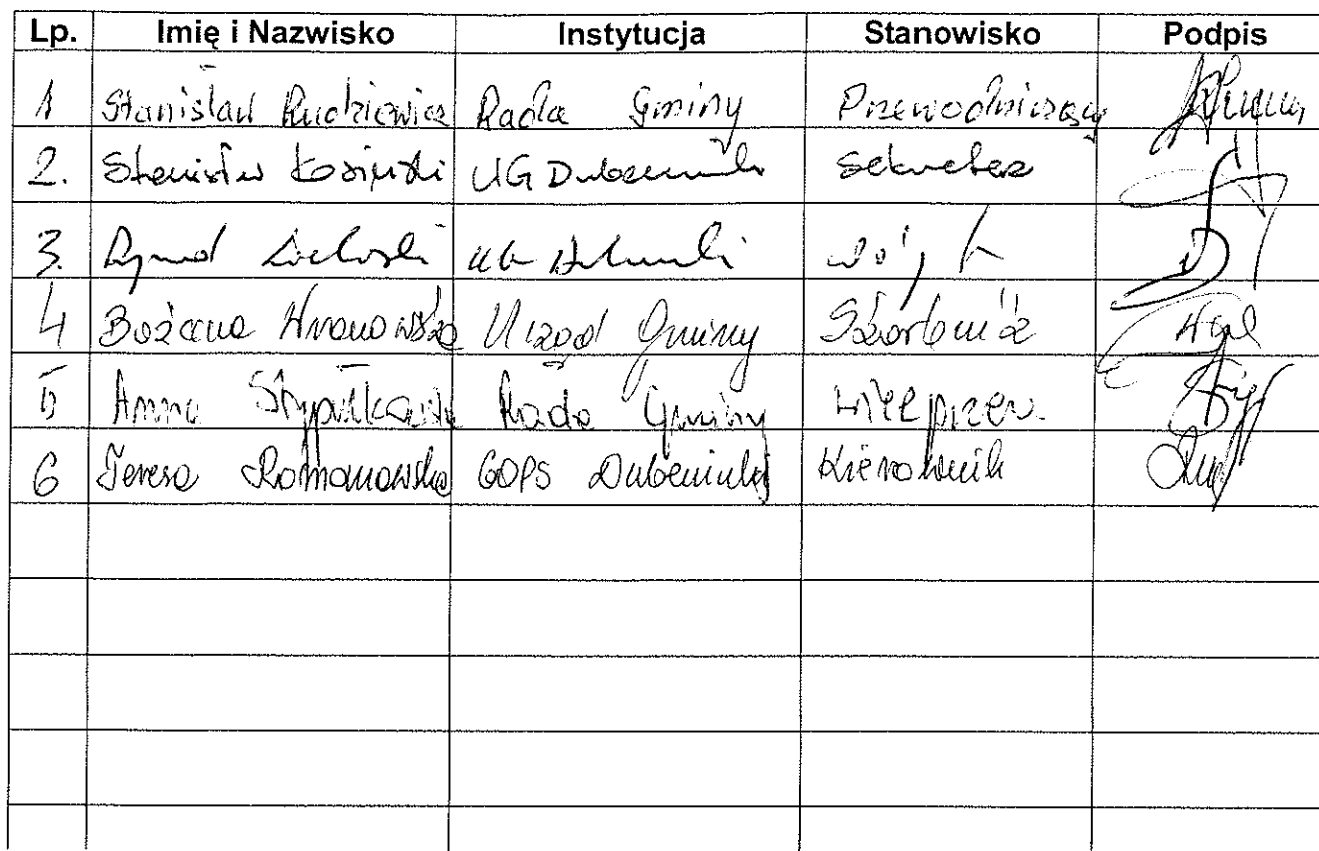 Lp. Imię i Nazwisko Instytucja Stanowisko Podpis
1 Stanisław Rudziewicz Rada Gminy Przewodniczący
2. Stanisław Łosiński UG Dubeninki Sekretarz
3. UG Dubeninki Wójt
4 Bożena Urząd Gminy Skarbnik
5 Anna Rada Gminy wiceprzew.
6 Teresa Romanowska GOPS Dubeninki Kierownik